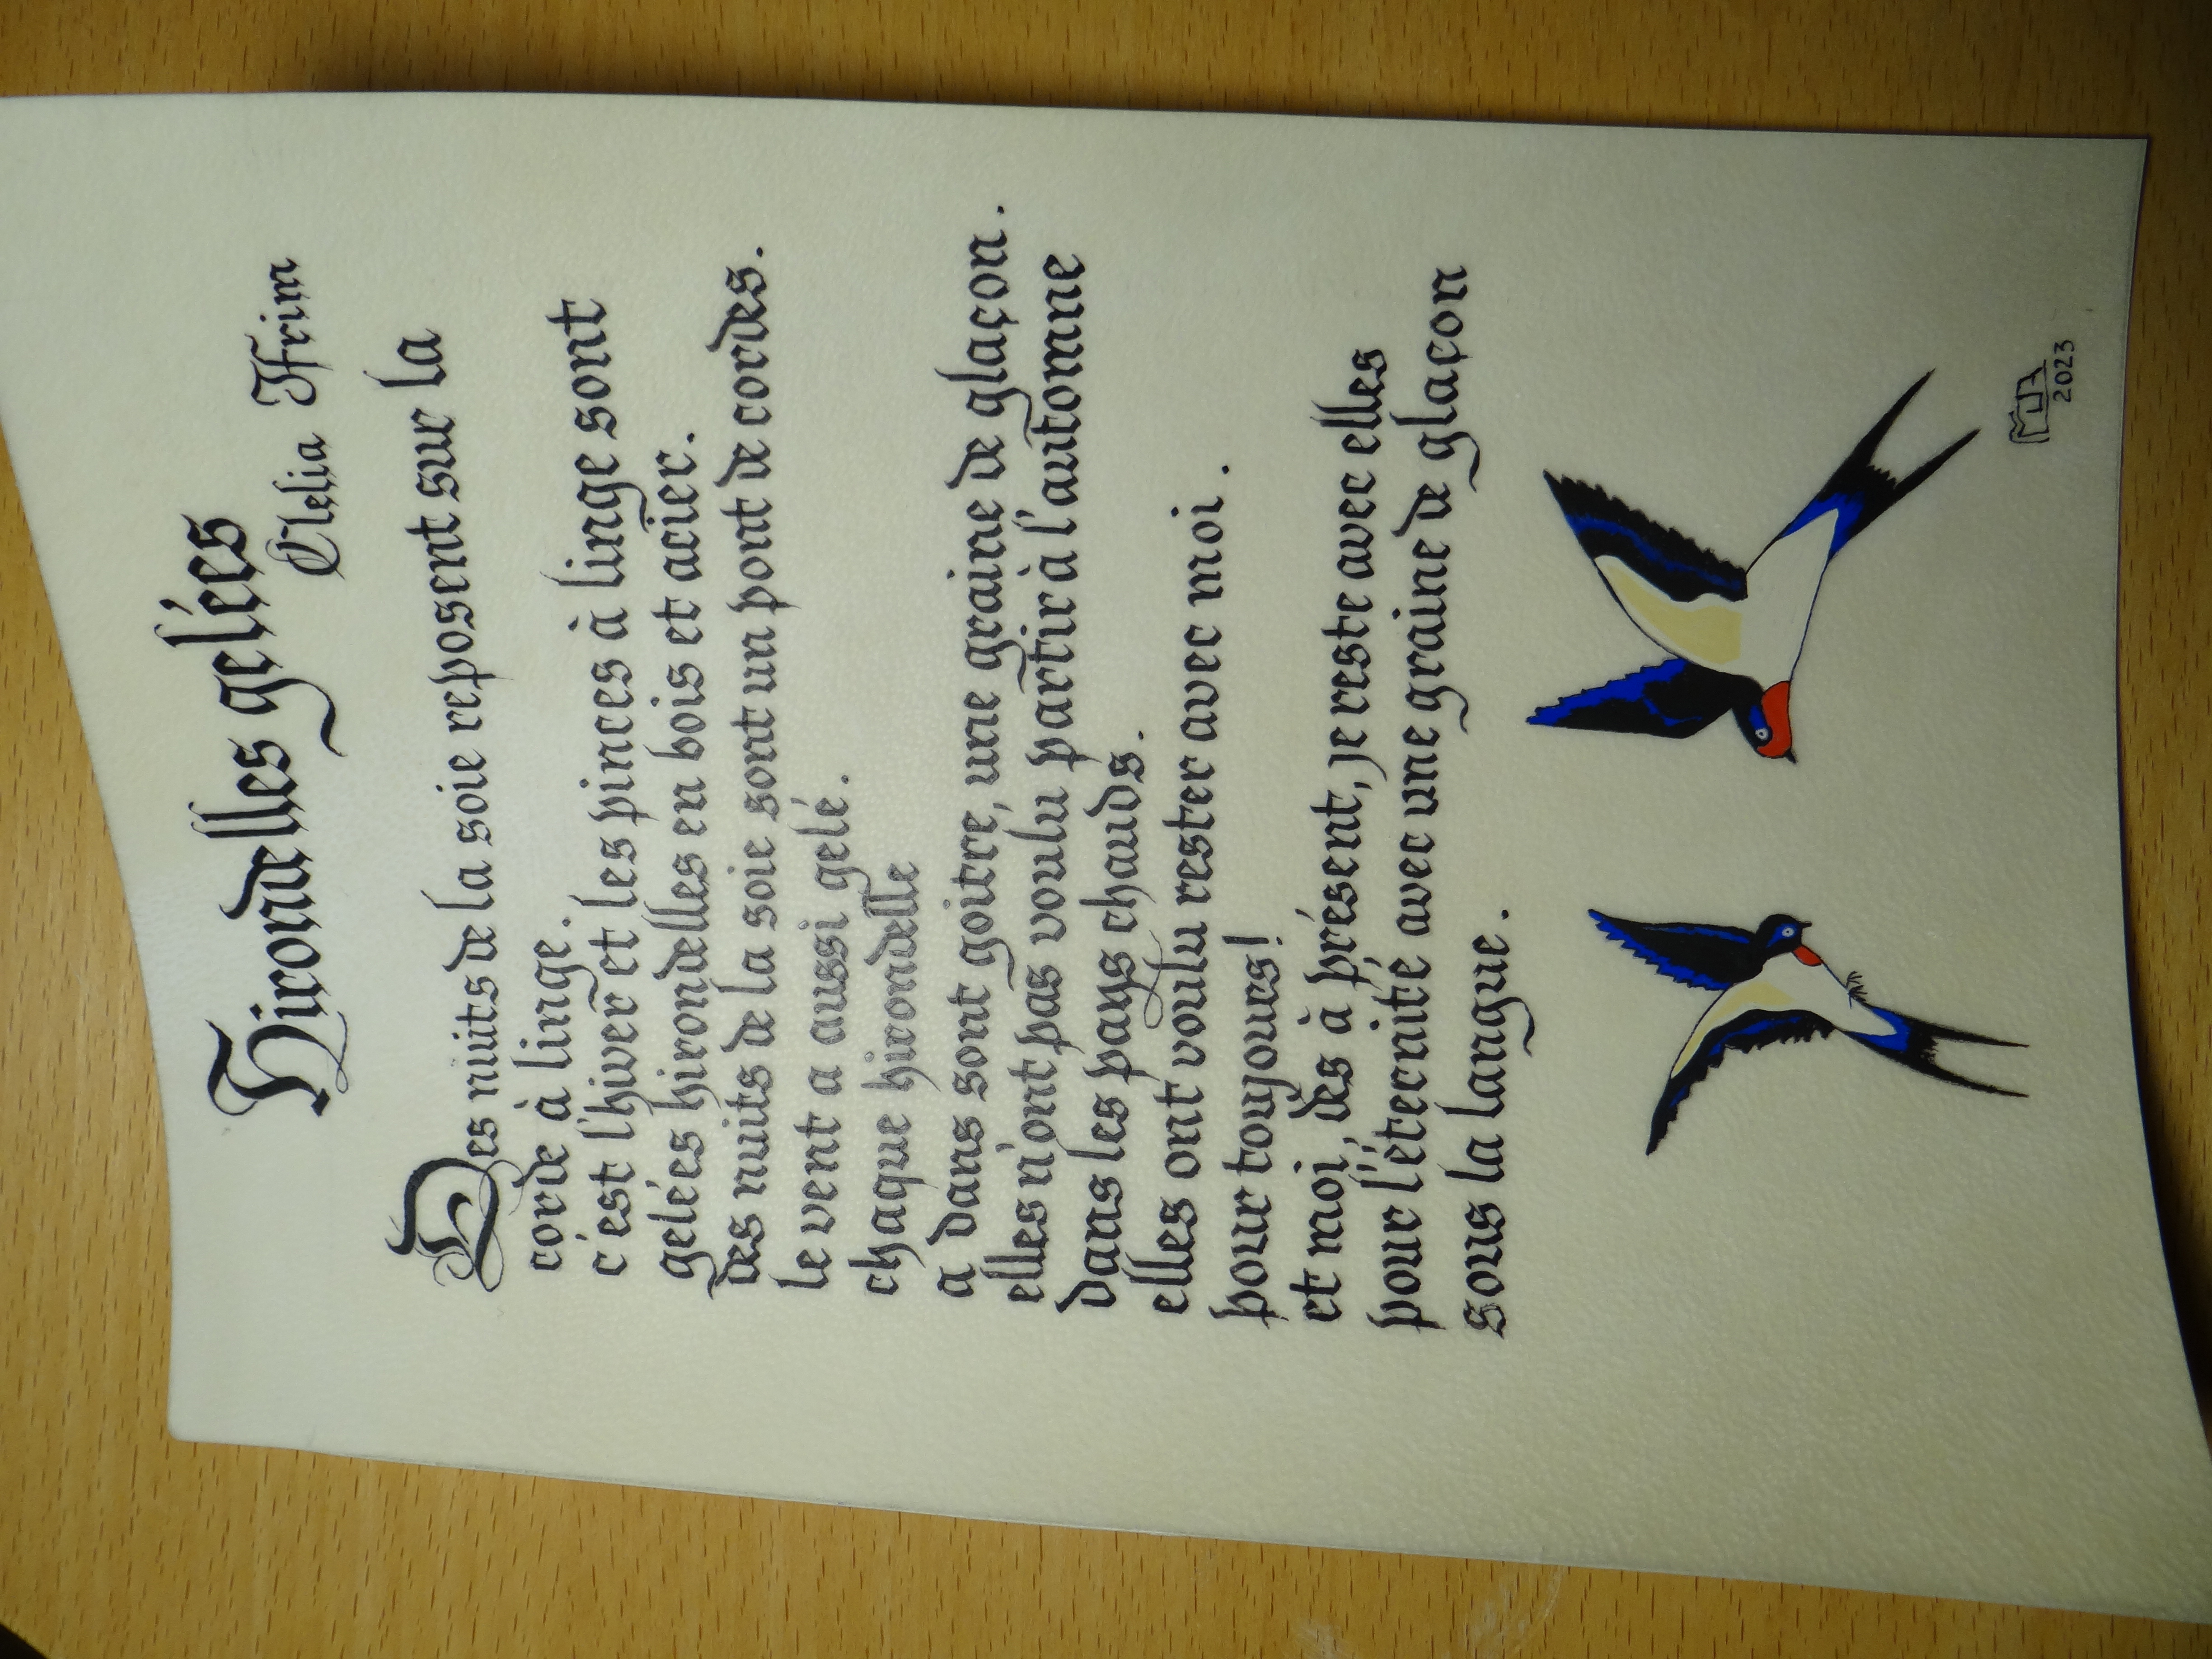 Hirondelles gelées
Clelia Ifrim
Des nuits de la soie reposent sur la
corde à linge.
c'est l'hiver et les pinces à linge sont
gelées hirondelles en bois et acier.
des nuits de la soie sont un pont de cordes.
le vent a aussi gelé.
chaque hirondelle
a dans sont goitre, une graine de glaçon.
elles n'ont pas voulu partir à l'automne
dans les pays chauds.
elles ont voulu rester avec moi.
pour toujours!
et moi, dès à présent, je reste avec elles
pour l'éternité avec une graine de glaçon
sous la langue.
2023